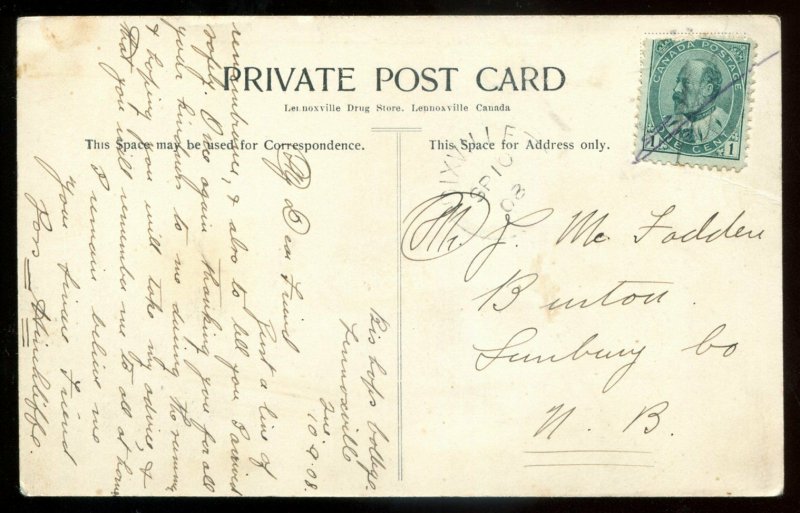 PRIVATE POST CARD
Lennoxville Drug Store. Lennoxville Canada
This Space may be used for Correspondence.
This Space for Address only.
CANADA POSTAGE
1 ONE CENT 1
SP 10
08
Mr J. Mc Fadden
Burton
Sunbury Co
N. B.
Bishops College
Lennoxville
Que.
10-9-08.
My Dear Friend
Just a line of
remembrance, & also to tell you I arrived
safely. Once again thanking you for all
your kindness to me during the summer
& hoping you will take my advice, &
that you will remember me to all at home
I remain believe me
your sincere Friend
Hinchliffe.